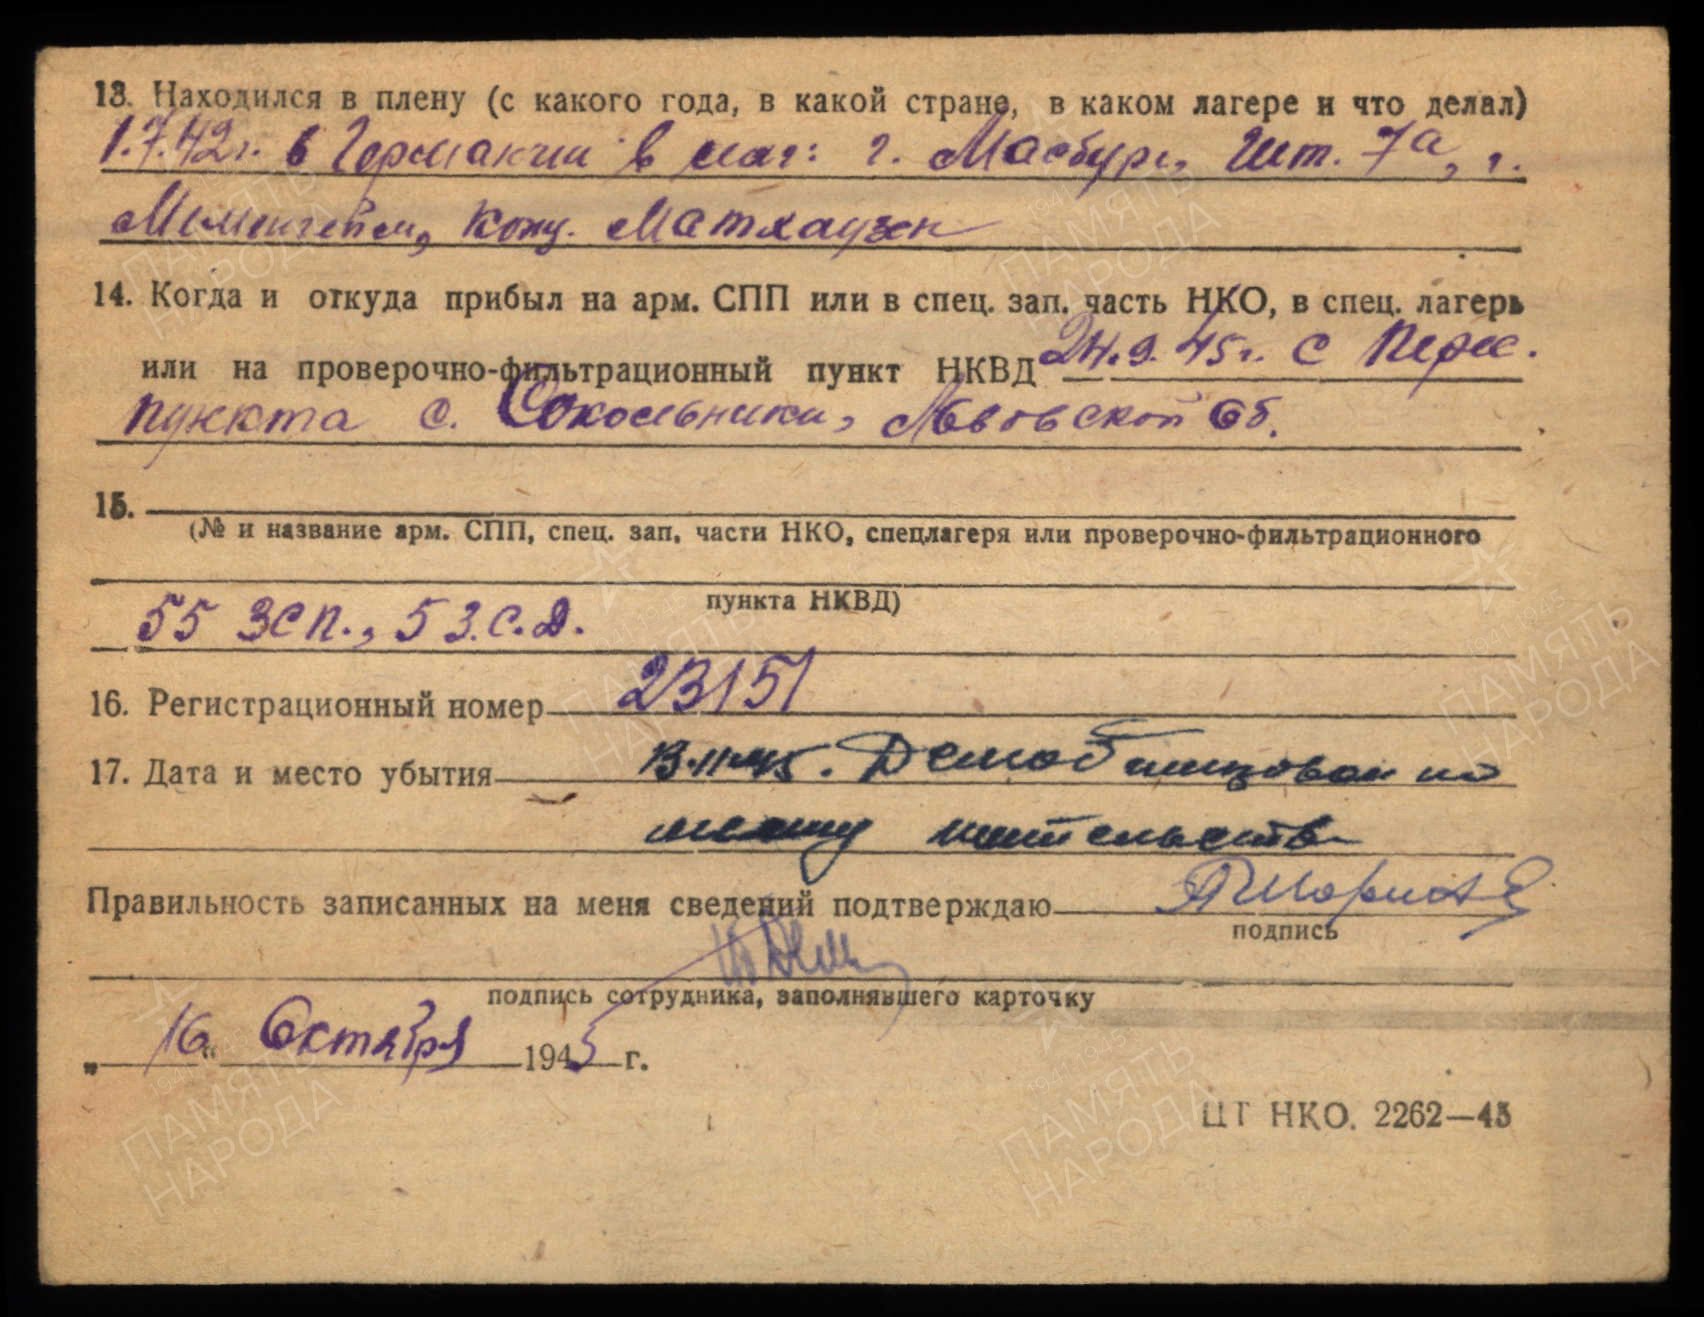 13. Находился в плену (с какого года, в какой стране, в каком лагере и что делал)
1.7.42г. в Германии в лаг: г. Масбург, Шт. 7а, г.
Меменгейм, Конц. Матхаузен
14. Когда и откуда прибыл на арм. СПП или в спец. зап. часть НКО, в спец. лагерь
или на проверочно-фильтрационный пункт НКВД 24.9.45г. с Перес.
пункта с. Сокольники, Львовской об.
15.
(№ и название арм. СПП, спец. зап. части НКО, спецлагеря или проверочно-фильтрационного
пункта НКВД)
55 ЗСП., 5 З.С.Д.
16. Регистрационный номер 23151
17. Дата и место убытия 13.11.45. Демобилизован по
месту жительства
Правильность записанных на меня сведений подтверждаю
подпись
подпись сотрудника, заполнявшего карточку
„16“ Октября 1945 г.
ЦТ НКО. 2262—45
1941-1945
ПАМЯТЬ
НАРОДА